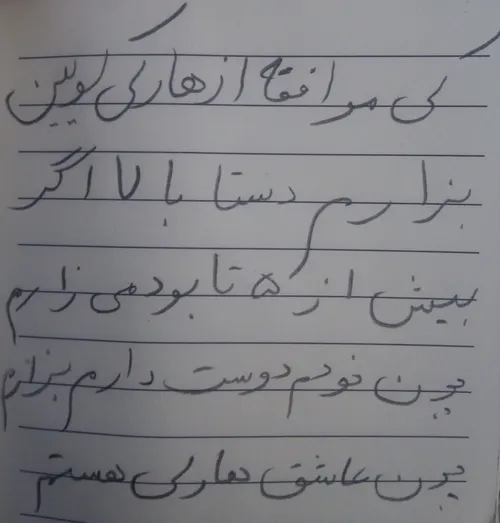 کی موافقه از هارلی کویین
بزارم دستا بالا اگر
بیش از ۵ تا بود می زارم
چون خودم دوست دارم بزارم
چون عاشق هارلی هستم